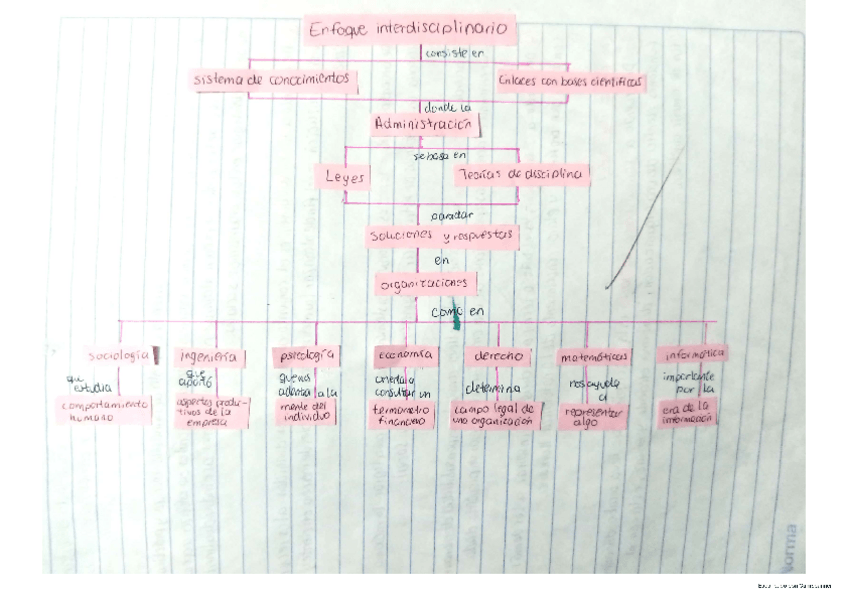 Enfoque interdisciplinario
consiste en
sistema de conocimientos
Enlaces con bases científicas
donde la
Administración
se basa en
Leyes
Teorías de disciplina
para dar
soluciones y respuestas
en
organizaciones
como en
sociología
ingeniería
psicología
economía
derecho
matemáticas
informática
que estudia
que aportó
determina
nos ayuda a
importante por la
comportamiento humano
aspectos produc-
tivos de la
empresa
mente del
individuo
termometro
financiero
campo legal de
una organización
representar
algo
era de la
información
Norma